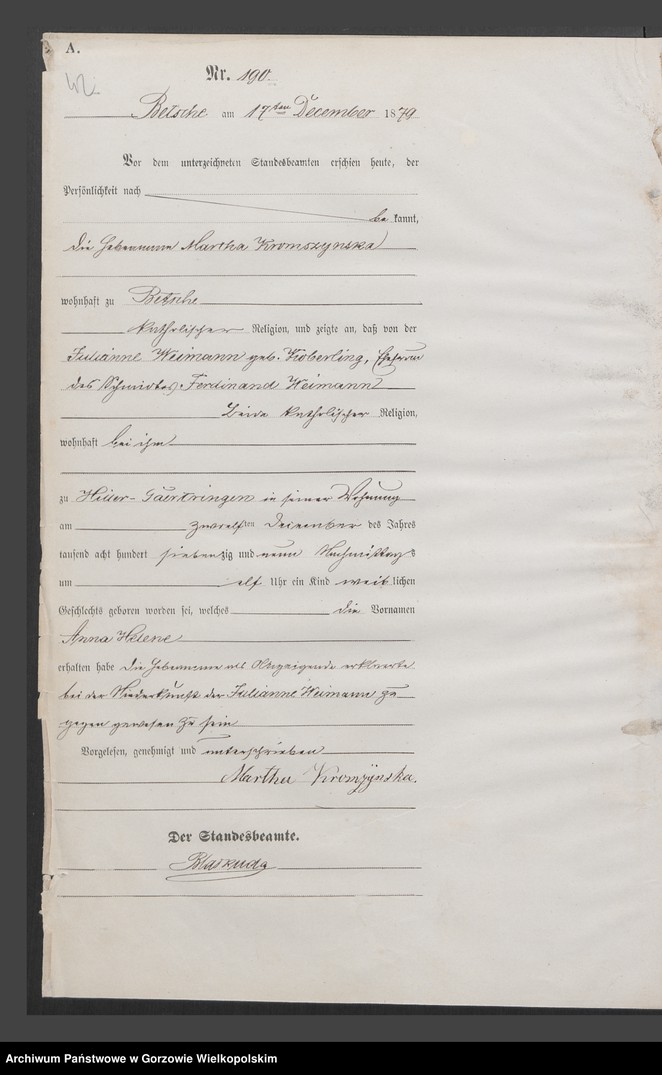 A.
Nr. 190.
Betsche am 17ten December 1879
Vor dem unterzeichneten Standesbeamten erschien heute, der
Persönlichkeit nach
bekannt,
die Hebamme Martha Kromszynska
wohnhaft zu Betsche
katholischer Religion, und zeigte an, daß von der
Julianne Weimann geb. Koberling, Ehefrau
des Schmiedes Ferdinand Weimann
beide katholischer Religion,
wohnhaft bei ihm
zu Hiller-Gaertringen in seiner Wohnung
am zwoelften December des Jahres
tausend acht hundert siebenzig und neun Nachmittags
um elf Uhr ein Kind weiblichen
Geschlechts geboren worden sei, welches die Vornamen
Anna Helene
erhalten habe die Hebamme als Anzeigende erklaerte
bei der Niederkunft der Julianne Weimann zu
gegen gewesen zu sein
Vorgelesen, genehmigt und unterschrieben
Martha Kromzÿnska.
Der Standesbeamte.
Archiwum Państwowe w Gorzowie Wielkopolskim